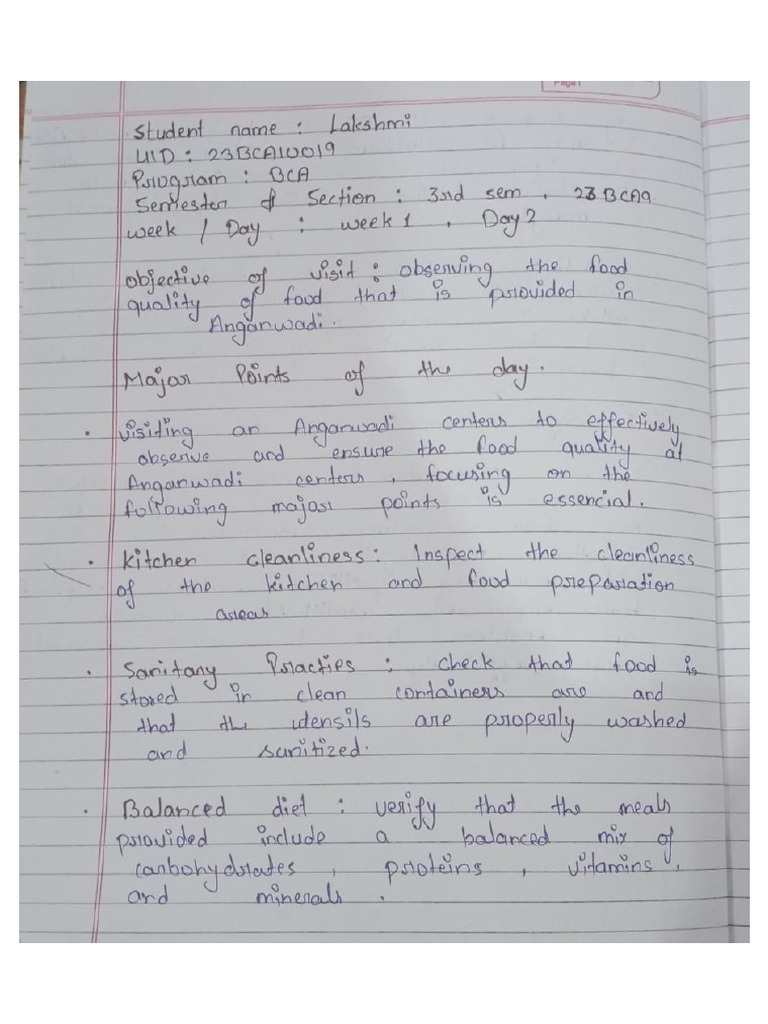 Page:
Student name : Lakshmi
UID : 23BCA10019
Program : BCA
Semester & Section : 3nd sem , 23BCA9
week / Day : week 1 , Day 2
objective of visit : observing the food
quality of food that is provided in
Anganwadi.
Major Points of the day.
• visiting an Anganwadi centers to effectively
observe and ensure the food quality at
Anganwadi centers , focusing on the
following major points is essencial.
• Kitchen cleanliness : Inspect the cleanliness
of the kitchen and food preparation
areas.
• Sanitany Practies : check that food is
stored in clean containers are and
that the utensils are properly washed
and sanitized.
• Balanced diet : verify that the meals
provided include a balanced mix of
carbohydrates , proteins , vitamins ,
and minerals .